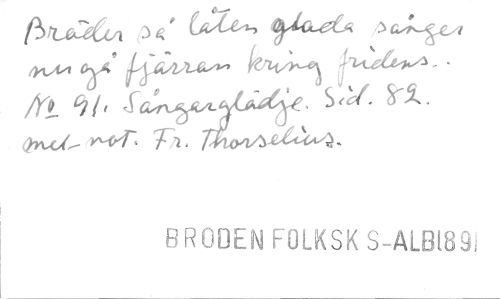 Bröder så låten glada sånger
nu gå fjärran kring fridens..
No 91. Sångarglädje. Sid. 82.
mel-not. Fr. Thorselius.
BRODEN FOLKSK S-ALB(891